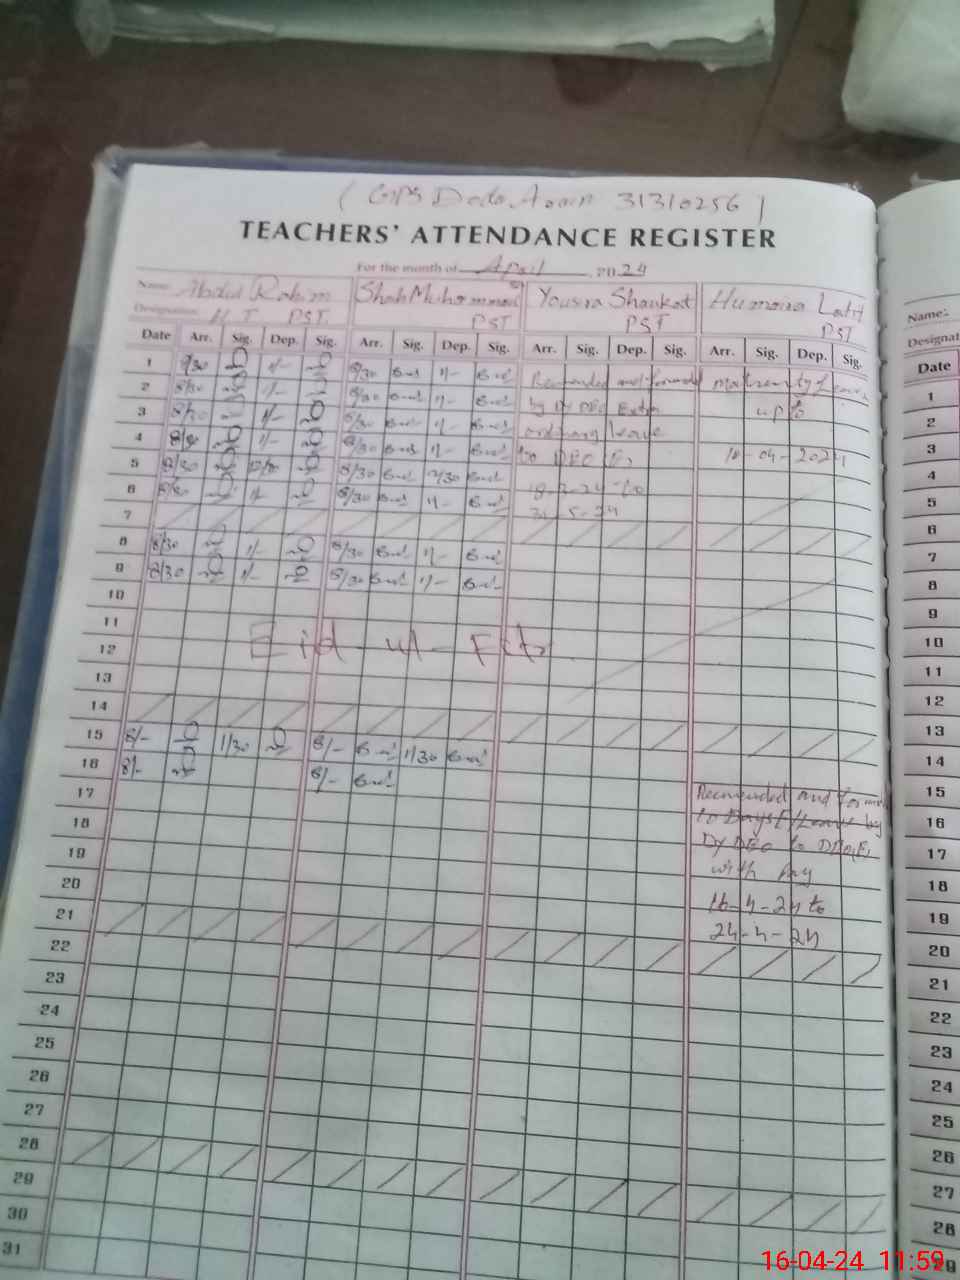 ( GPS Dodo Arain 31310256 )
TEACHERS' ATTENDANCE REGISTER
For the month of April, 2024
Name: Abdul Rahim Shah Muhammad Yousra Shaukat Humaira Latif
Designation: H.T PST. PST PST PST
Date Arr. Sig. Dep. Sig. Arr. Sig. Dep. Sig. Arr. Sig. Dep. Sig. Arr. Sig. Dep. Sig.
1 8/30 1/- 8/30 1/- Recmended and forward maternity leave
2 8/30 1/- 8/30 1/- by Dy DEO Extra up to
3 8/30 1/- 8/30 1/- ordinary leave
4 8/30 1/- 8/30 1/- to DEO (E) 18-04-2024
5 8/30 8/30
6 8/30 1/- 8/30 1/- to
7
8 8/30 1/- 8/30 1/-
9 8/30 1/- 8/30 1/-
10
11
12 Eid-ul-Fitr
13
14
15 8/- 1/30 8/- 1/30
16 8/- 8/-
17 Recmended and
18 10 Days E/Leave by
19 Dy DEO to DEO(E)
20 with pay
21 16-4-24 to
22 24-4-24
23
24
25
26
27
28
29
30
31
Name:
Designat
Date
1
2
3
4
5
6
7
8
9
10
11
12
13
14
15
16
17
18
19
20
21
22
23
24
25
26
27
28
29
16-04-24 11:59